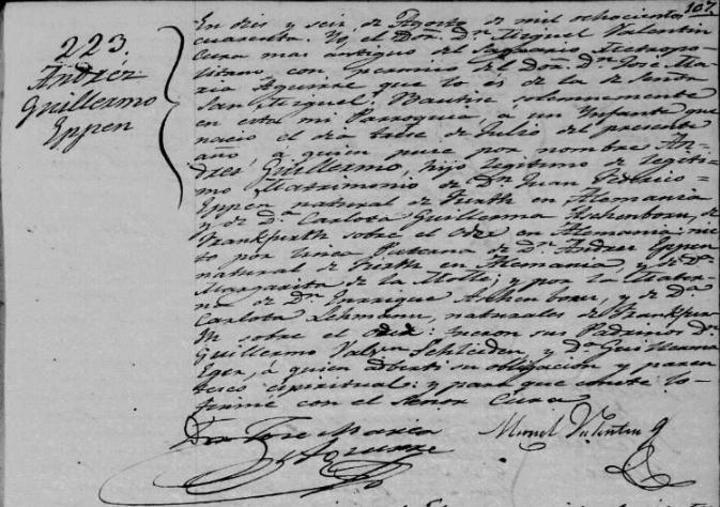 107.
223.
Andrés
Guillermo
Eppen
En dies y seis de Agosto de mil ochocientos
cuarenta. Yo el Doñ. Dn. Miguel Valentin
Cura mas antiguo del Sagrario Metropo-
litano, con permiso del Doñ. Dn. José Ma-
ria Aguirre que lo és de la de Santa
San Miguel, Bautisé solemnemente
en esta mi Parroquia, á un Infante que
nació el dia trese de Julio del presente
año, á quien puse por nombre An-
drés, Guillermo, hijo legitimo de legiti-
mo Matrimonio de Dn. Juan Federico
Eppen natural de Fürth en Alemania
y de Da. Carlota Guillerma Aschenborn, de
Frankfurth sobre el Oder en Alemania: nie-
to por linea Paterna de Dn. Andres Eppen
natural de Fürth en Alemania, y de Da.
Margarita de la Motte; y por la Mater-
na de Dn. Enrrique Aschenborn, y de Da.
Carlota Lehmann, naturales de Frankfur-
th sobre el Oder: fueron sus Padrinos Dn.
Guillermo Schleiden, y Da. Guillerma
Eger, á quien advertí su obligacion y paren-
tesco espiritual: y para que conste lo
firmé con el Señor Cura
Dor. Jose Maria
Aguirre
Miguel Valentin